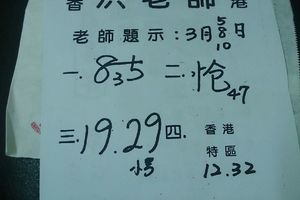 香洪老師港
老師題示:3月5 8 10日
一.835 二.怆47
三.19.29 四.香港
小号 特區
12.32